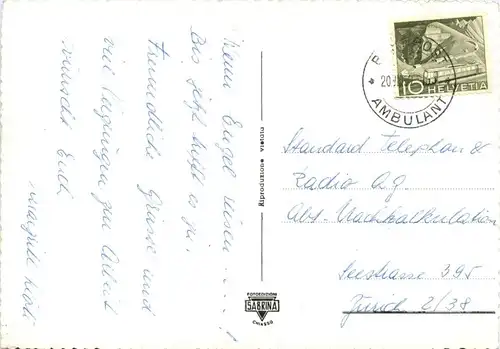 Wenn Engel reisen .....!
Bis jetzt hofft es ja.
Freundliche Grüsse und
viel Vergnügen zur Arbeit
wünscht Euch
Riproduzione vietata
FOTOEDIZIONI
SABRINA
CHIASSO
AMBULANT
10 HELVETIA
Standard Telephon &
Radio AG.
Abt. Nachkalkulation
Seestrasse 395
Zürich 2/38